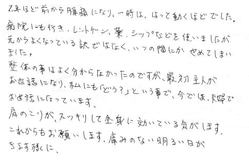 2年ほど前から腰痛になり、一時は、はって動くほどでした。
病院にも行き、レントゲン、薬、シップなどを使いましたが
良かよくなっている訳ではなく、いつの間にか やめてしまい
ました。
整体の事はよく分からなかったのですが、最初主人が
お世話になり、私にも「どう?」という事で、今では、夫婦で
お世話になっています。
肩のこりが、スッキリして全身に効いている気がします。
これからもお願いします。痛みのない明るい日が
をます様に。